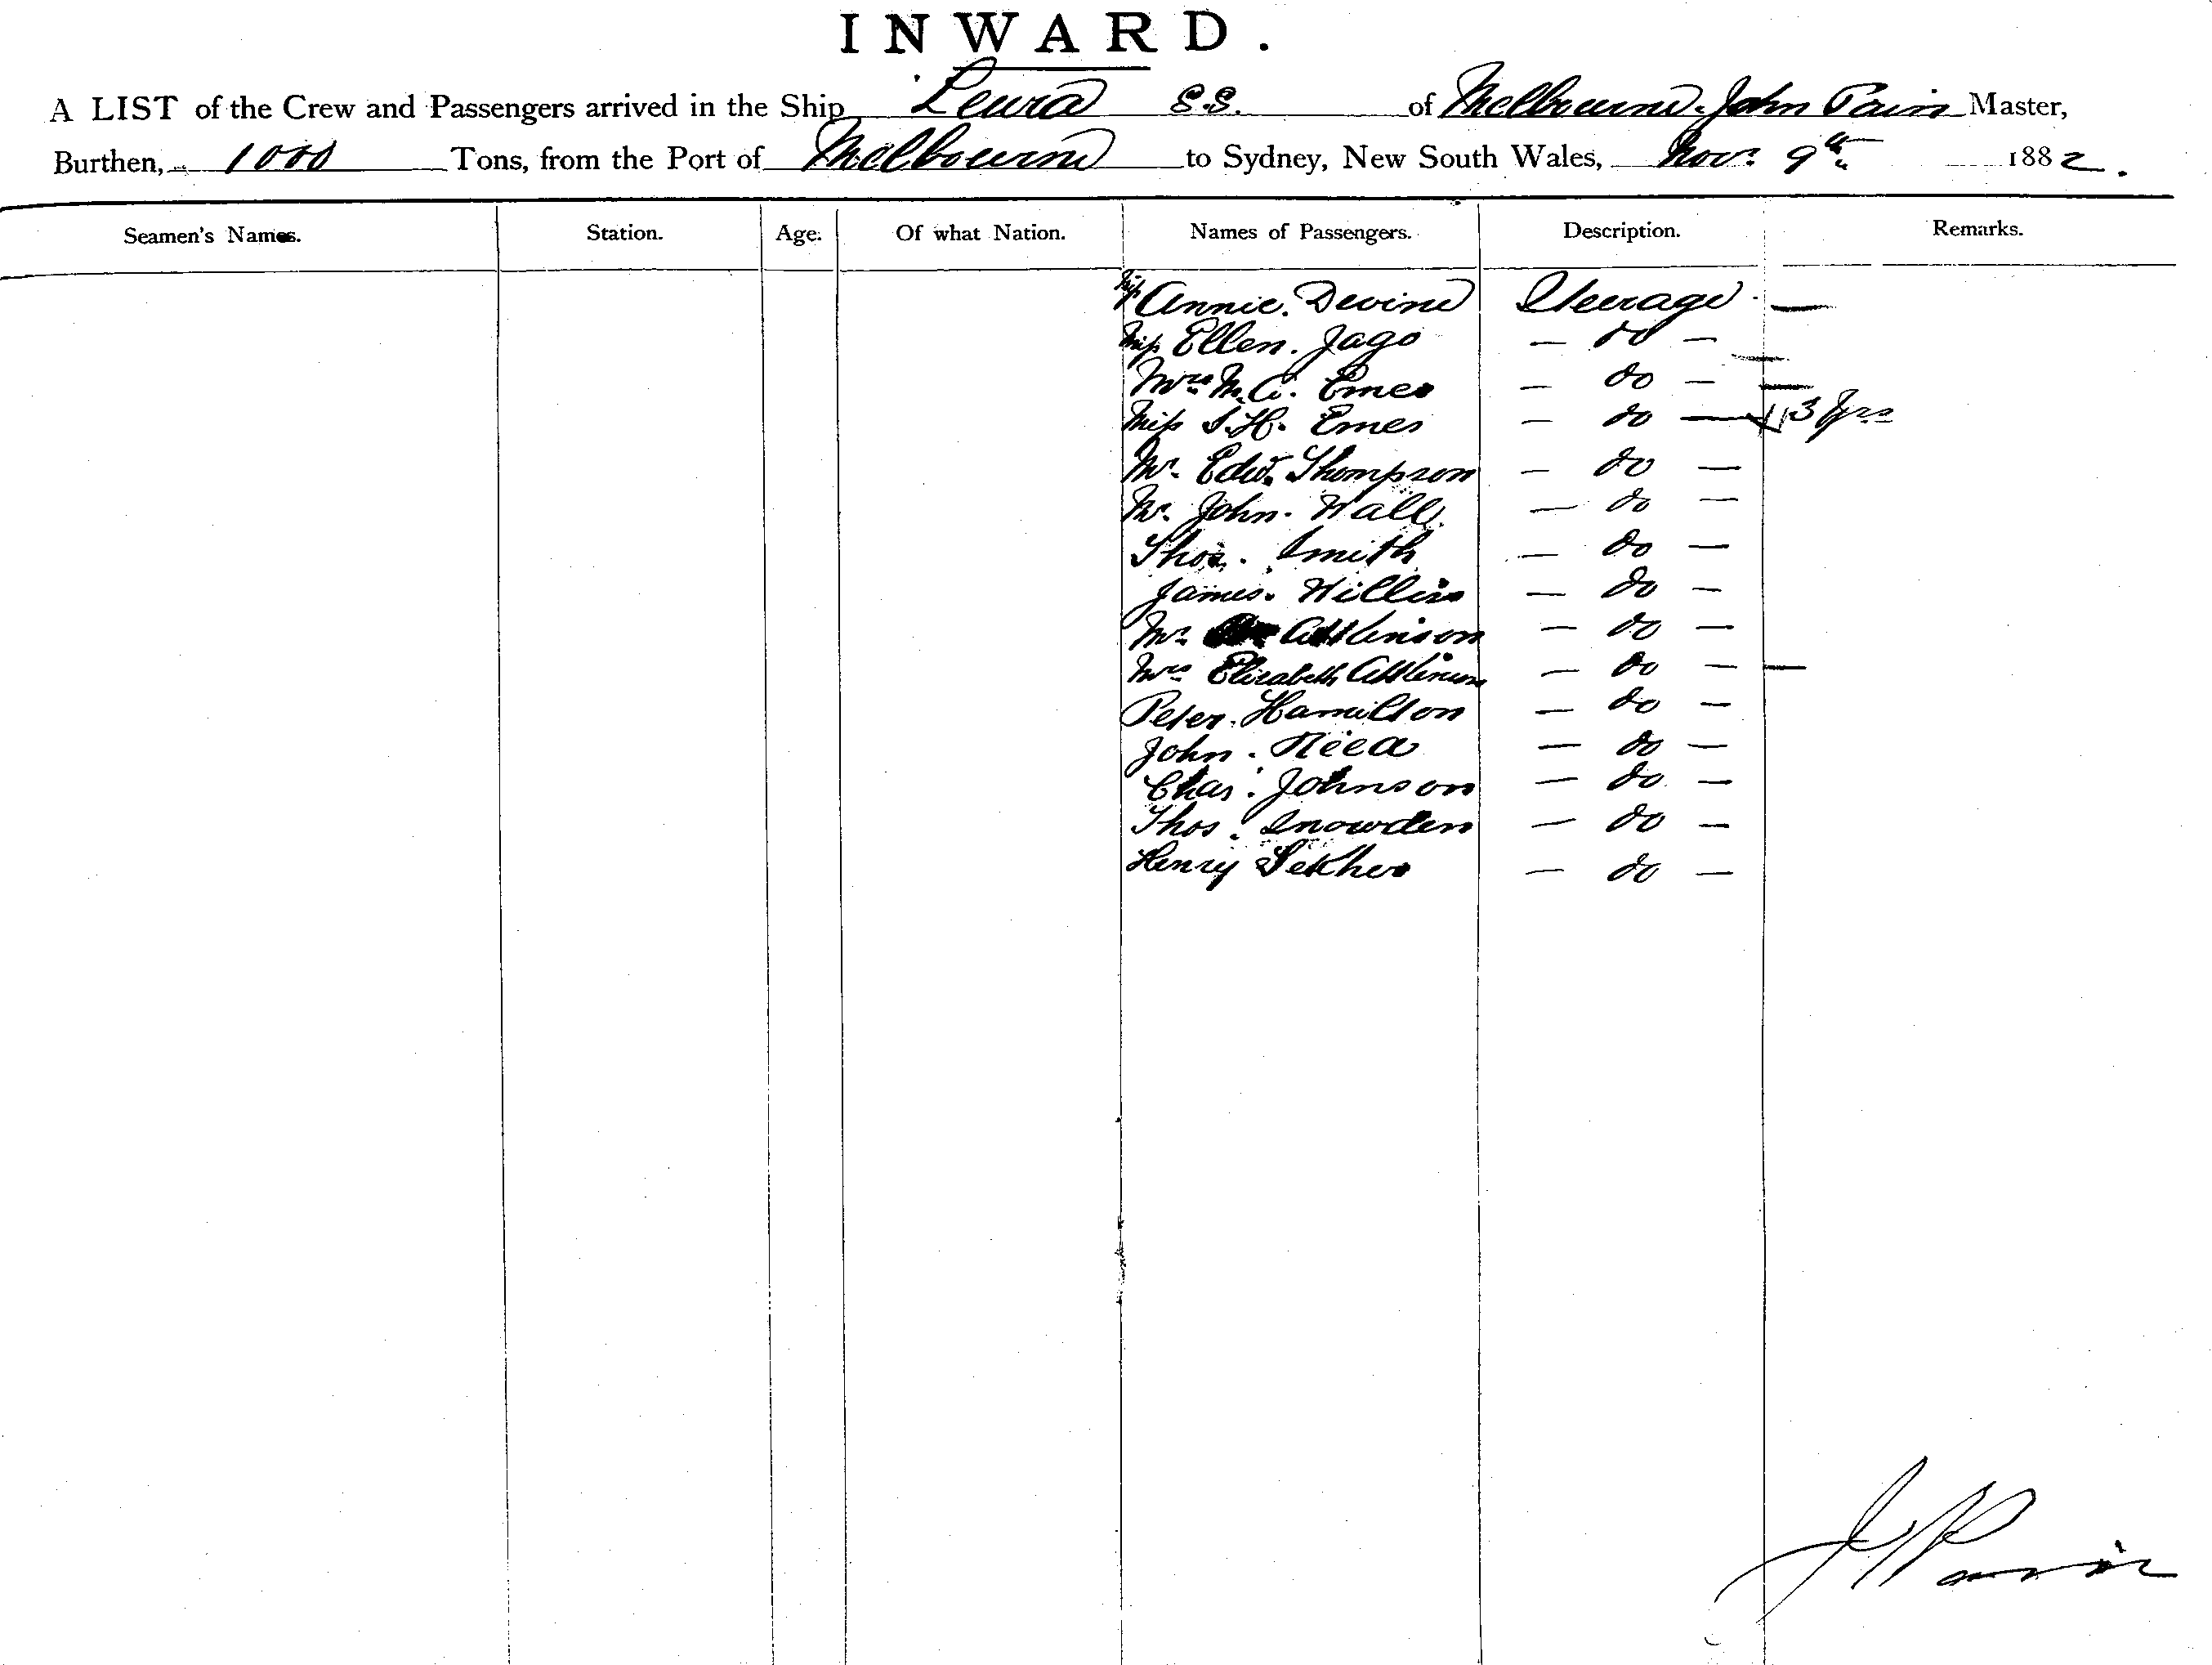 INWARD.
A LIST of the Crew and Passengers arrived in the Ship Leura S.S. of Melbourne. John Pain Master,
Burthen, 1000 Tons, from the Port of Melbourne to Sydney, New South Wales, Nov. 9th 1882.
Seamen's Names. Station. Age. Of what Nation. Names of Passengers. Description. Remarks.
Miss Annie. Devine Steerage
Miss Ellen. Jago — do —
Mrs M.A. Emes — do —
Miss S.H. Emes — do — 3 yrs
Mr. Edwd. Thompson — do —
Mr. John. Wall — do —
Thos. Smith — do —
James. Willis — do —
Mr. Attkinson — do —
Mrs Elizabeth Attkinson — do —
Peter. Hamilton — do —
John. — do —
Chas. Johnson — do —
Thos. Snowden — do —
Henry — do —
J Pain